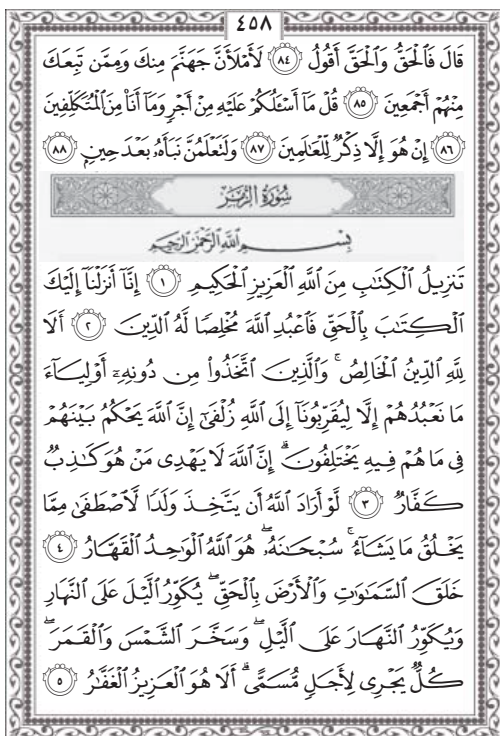 ٤٥٨
قَالَ فَٱلْحَقُّ وَٱلْحَقَّ أَقُولُ ٨٤ لَأَمْلَأَنَّ جَهَنَّمَ مِنكَ وَمِمَّن تَبِعَكَ
مِنْهُمْ أَجْمَعِينَ ٨٥ قُلْ مَآ أَسْـَٔلُكُمْ عَلَيْهِ مِنْ أَجْرٍ وَمَآ أَنَا۠ مِنَ ٱلْمُتَكَلِّفِينَ
٨٦ إِنْ هُوَ إِلَّا ذِكْرٌ لِّلْعَـٰلَمِينَ ٨٧ وَلَتَعْلَمُنَّ نَبَأَهُۥ بَعْدَ حِينٍۭ ٨٨
سُورَةُ الزُّمَرِ
بِسْمِ ٱللَّهِ ٱلرَّحْمَـٰنِ ٱلرَّحِيمِ
تَنزِيلُ ٱلْكِتَـٰبِ مِنَ ٱللَّهِ ٱلْعَزِيزِ ٱلْحَكِيمِ ١ إِنَّآ أَنزَلْنَآ إِلَيْكَ
ٱلْكِتَـٰبَ بِٱلْحَقِّ فَٱعْبُدِ ٱللَّهَ مُخْلِصًا لَّهُ ٱلدِّينَ ٢ أَلَا
لِلَّهِ ٱلدِّينُ ٱلْخَالِصُ ۚ وَٱلَّذِينَ ٱتَّخَذُوا۟ مِن دُونِهِۦٓ أَوْلِيَآءَ
مَا نَعْبُدُهُمْ إِلَّا لِيُقَرِّبُونَآ إِلَى ٱللَّهِ زُلْفَىٰٓ إِنَّ ٱللَّهَ يَحْكُمُ بَيْنَهُمْ
فِى مَا هُمْ فِيهِ يَخْتَلِفُونَ ۗ إِنَّ ٱللَّهَ لَا يَهْدِى مَنْ هُوَ كَـٰذِبٌ
كَفَّارٌ ٣ لَّوْ أَرَادَ ٱللَّهُ أَن يَتَّخِذَ وَلَدًا لَّٱصْطَفَىٰ مِمَّا
يَخْلُقُ مَا يَشَآءُ ۚ سُبْحَـٰنَهُۥ ۖ هُوَ ٱللَّهُ ٱلْوَٰحِدُ ٱلْقَهَّارُ ٤
خَلَقَ ٱلسَّمَـٰوَٰتِ وَٱلْأَرْضَ بِٱلْحَقِّ ۖ يُكَوِّرُ ٱلَّيْلَ عَلَى ٱلنَّهَارِ
وَيُكَوِّرُ ٱلنَّهَارَ عَلَى ٱلَّيْلِ ۖ وَسَخَّرَ ٱلشَّمْسَ وَٱلْقَمَرَ ۖ
كُلٌّ يَجْرِى لِأَجَلٍ مُّسَمًّى ۗ أَلَا هُوَ ٱلْعَزِيزُ ٱلْغَفَّـٰرُ ٥